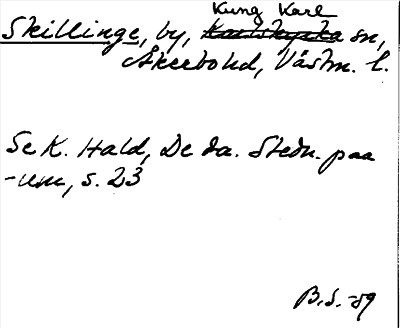 Kung Karl
Skillinge, by, Karlskyrka sn,
Åkerbo hd, Västm. l.
Se K. Hald, De da. Stedn. paa
-um, s. 23
B.S. -59